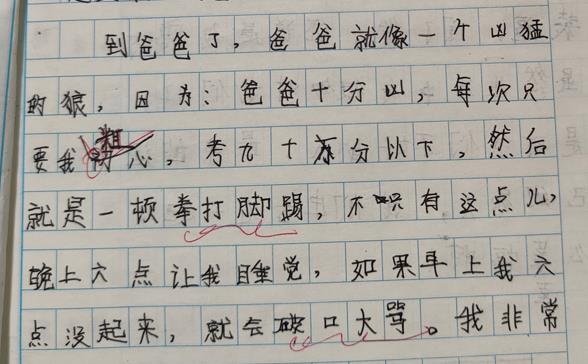 到爸爸了，爸爸就像一个凶猛
的狼，因为：爸爸十分凶，每次只
要我粗心，考九十分以下，然后
就是一顿拳打脚踢，不只有这点儿，
晚上六点让我睡觉，如果早上我六
点没起来，就会破口大骂。我非常